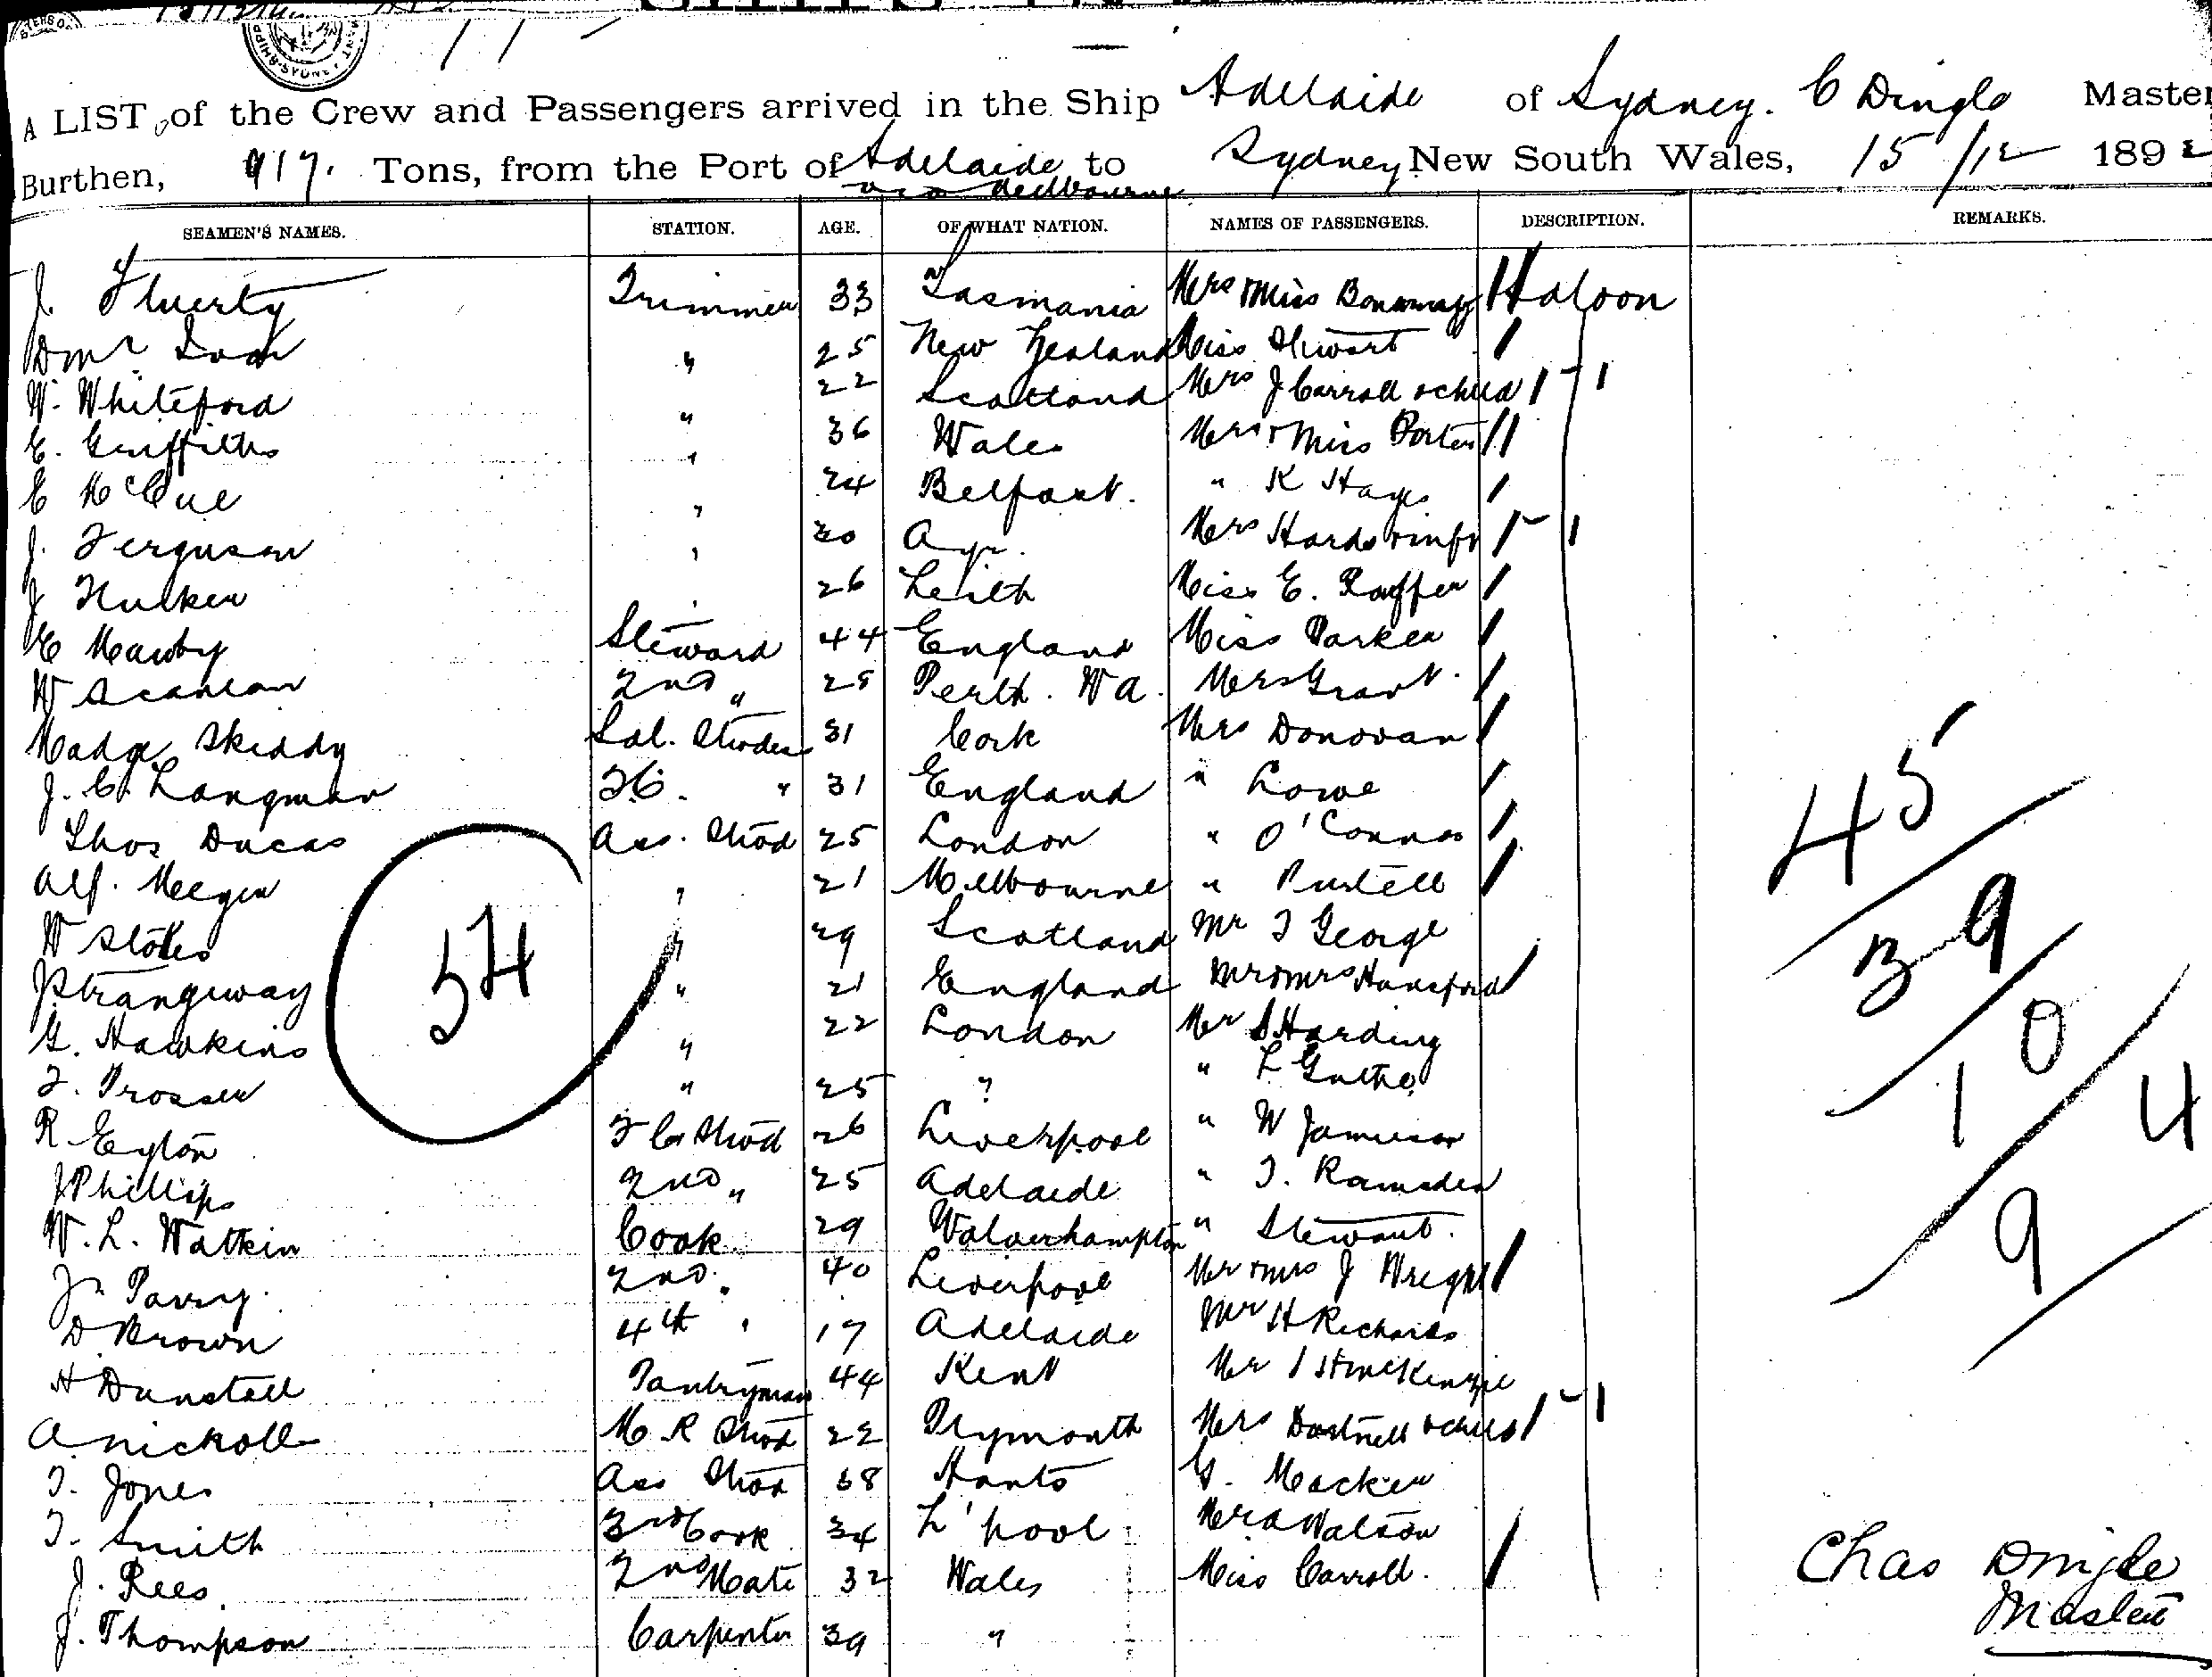 A LIST, of the Crew and Passengers arrived in the Ship Adelaide of Sydney. C Dingle Master
Burthen, 917. Tons, from the Port of Adelaide to Sydney New South Wales, 15/12 189
via Melbourne
SEAMEN'S NAMES. STATION. AGE. OF WHAT NATION. NAMES OF PASSENGERS. DESCRIPTION. REMARKS.
J. Trimmer 33 Tasmania Mrs & Miss Saloon
" 25 New Zealand Miss Stewart
W. Whiteford " 22 Scotland Mrs J Carroll & child
E. Griffiths " 36 Wales Mrs & Miss Porter
E McCue " 24 Belfast. " K Hayes
J. Ferguson " 30 Ayr. Mrs Hards & inft
J " 26 Leith Miss E.
E Mawby Steward 44 England Miss Parker
W Scanlan 2nd " 28 Perth. WA. Mrs Grant.
Madge Skiddy Sal. Stwdess 31 Cork Mrs Donovan
J. C. Langman " 31 England " Lowe
Thos Ducas Ass. Stwd 25 London " O'Connor
Alf. " 21 Melbourne "
W Stokes " 29 Scotland Mr T George
J Strangeway " 21 England Mr & Mrs Hansford
G. Hawkins " 22 London Mr S Harding
T. Prosser " 25 " " L
R Eyton Stwd 26 Liverpool " W Jamieson
J Phillips 2nd " 25 Adelaide " T. Ramsden
W. L. Watkin Cook 29 Wolverhampton " Stewart.
Parry 2nd " 40 Liverpool Mr & Mrs J Wright
D Brown 4th " 17 Adelaide Mr H Richards
H Dunstall Pantryman 44 Kent Mr McKenzie
A Nicholls M R Stwd 22 Plymouth Mrs Dartnell & child
T. Jones Ass Stwd 38 Hants G. Mackie
T. Smith 3rd Cook 34 L'pool Watson
J. Rees 2nd Mate 32 Wales Miss Carroll.
J. Thompson Carpenter 39 "
54
45
39
10
9
4
Chas Dingle
Master